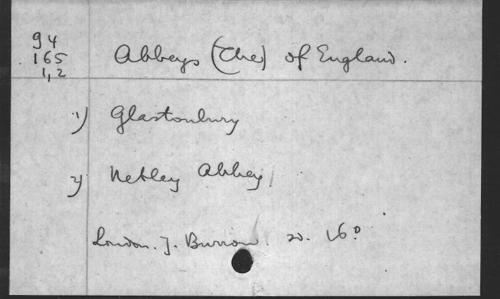 94
165
1,2
Abbeys (The) of England.
1) Glastonbury
2) Netley Abbey
London. J. Burrow. 16º